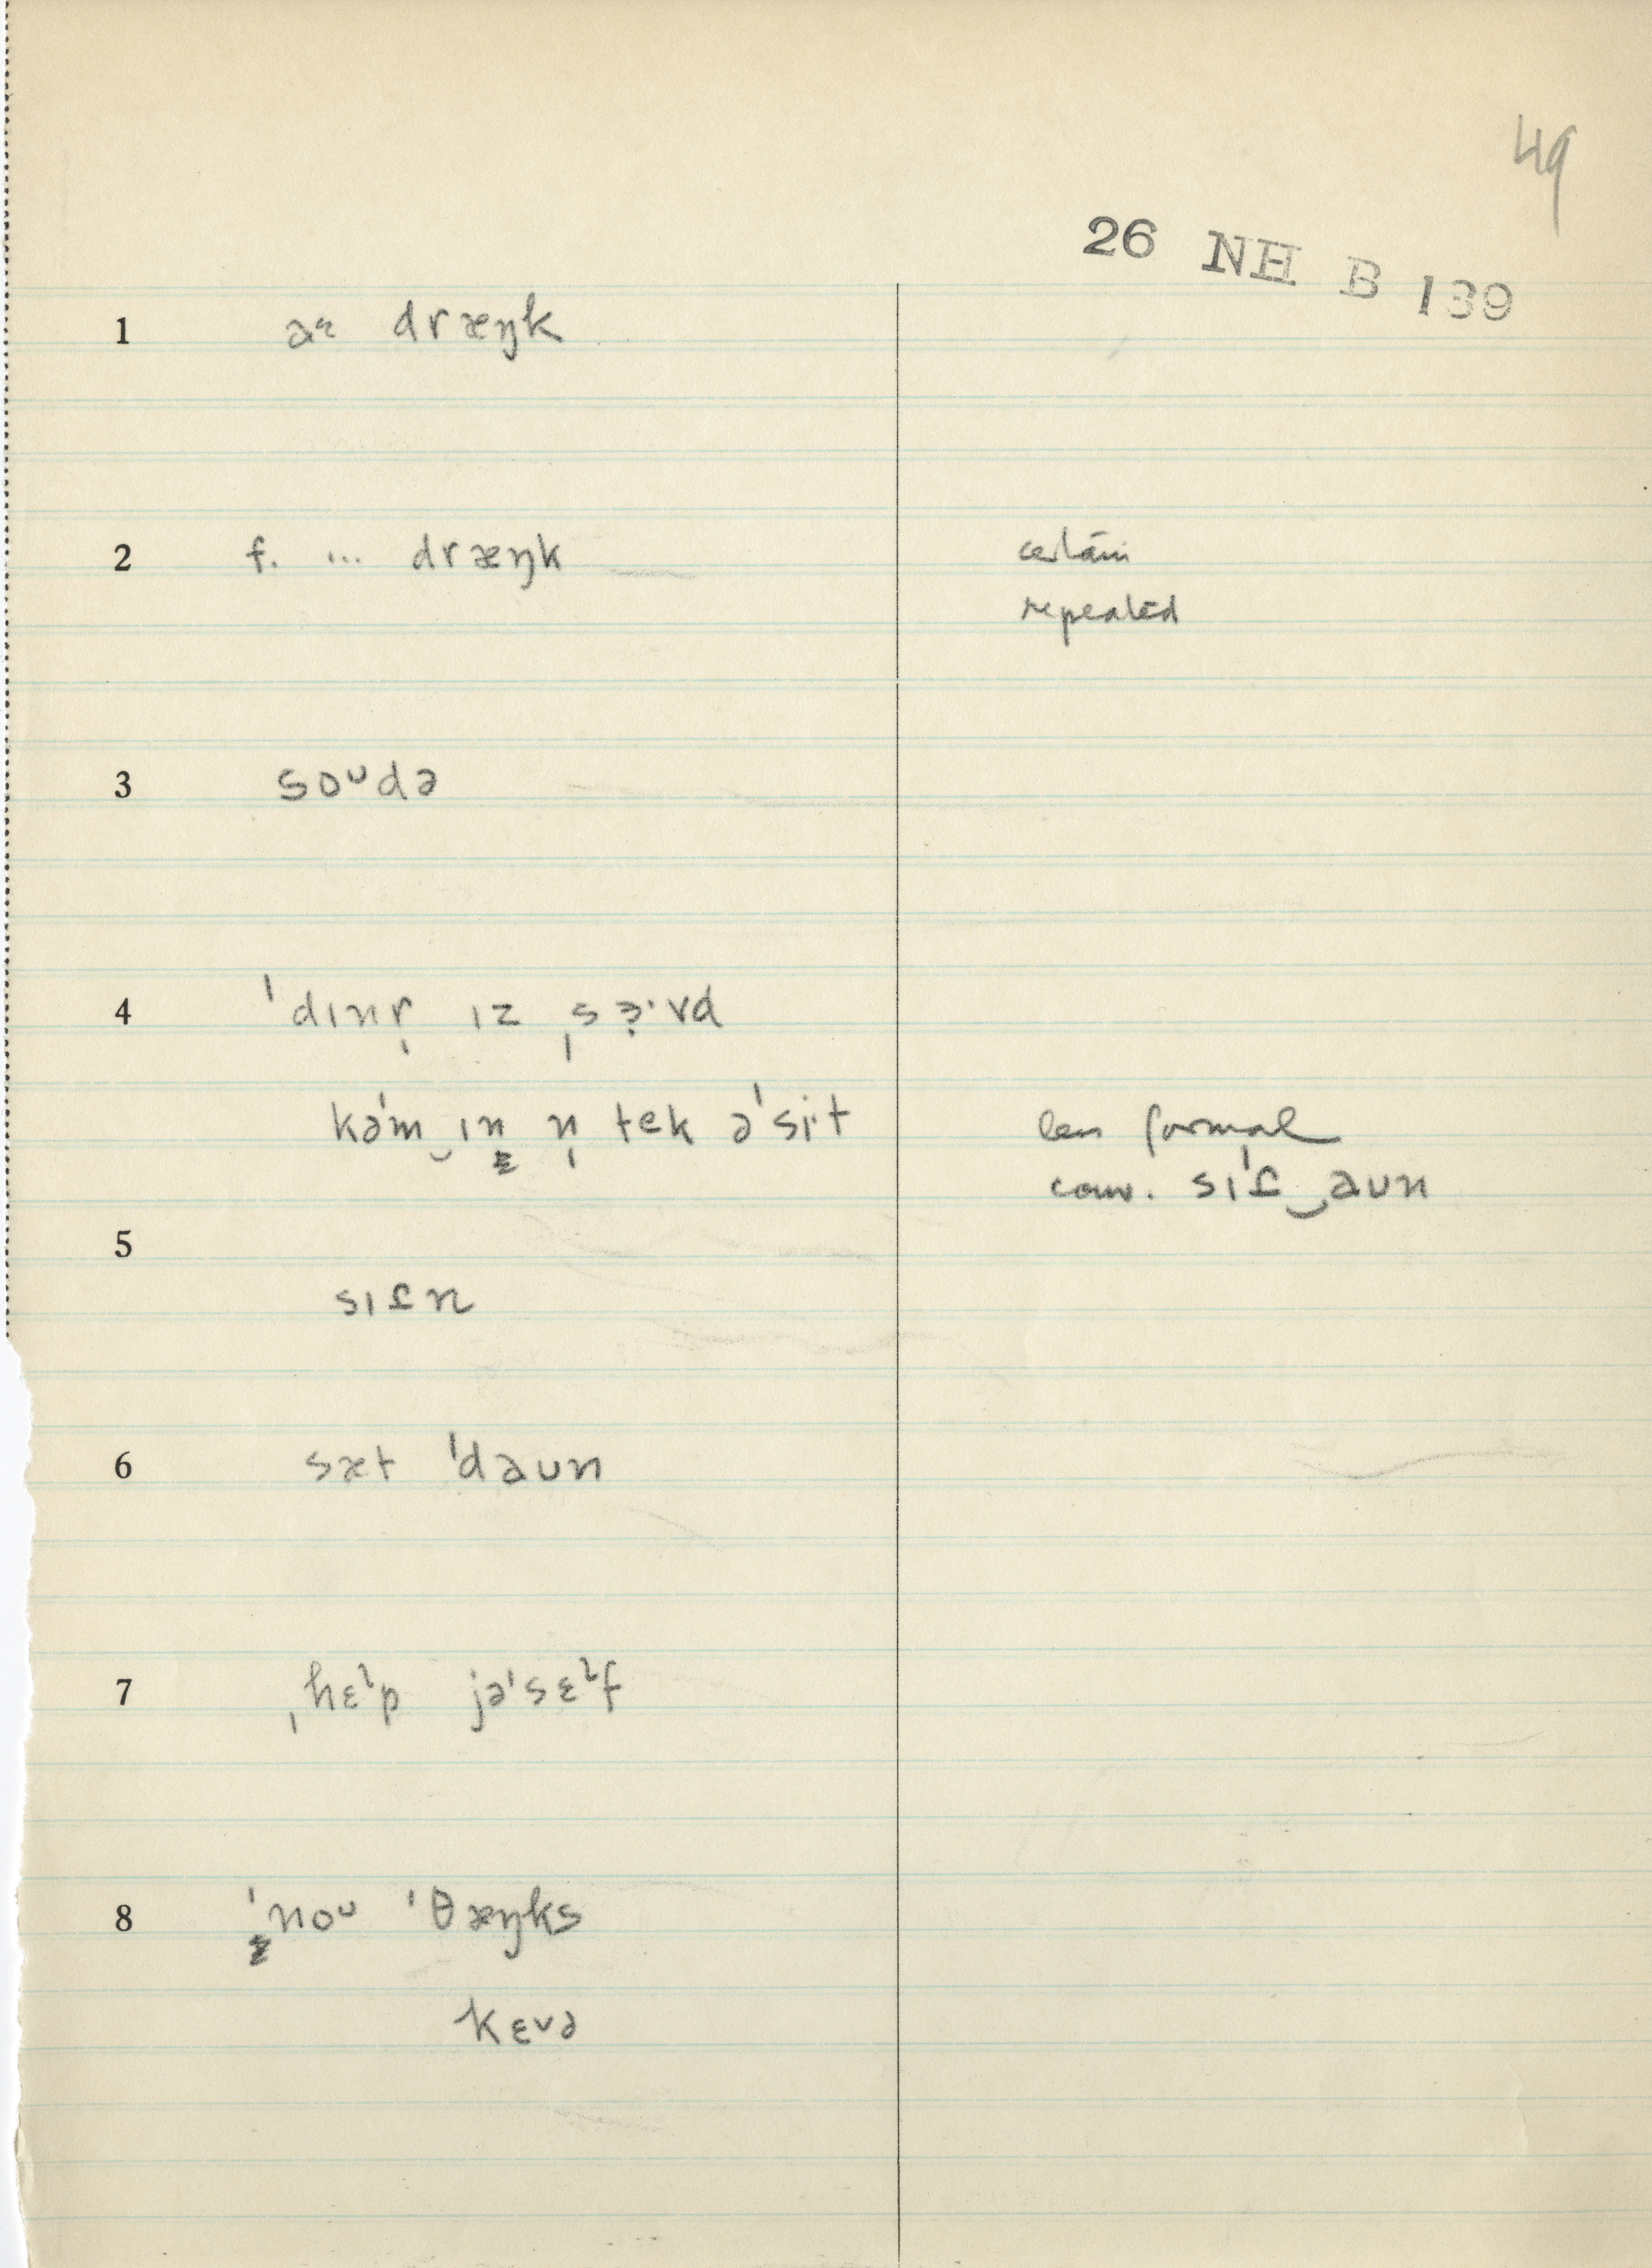 49
26 NH B 139
1 aɪ dræŋk
2 f. ... dræŋk certain
repeated
3 soᴜdə
4 ˈdɪnr̩ ɪz ˌsɜ̣·vd
kəˈm‿ɪn n̩ tek əˈsiˑt less formal
conv. sɪˈt̬‿aᴜn
5
sɪt̬n
6 sæt ˈdaᴜn
7 ˌhɛˡp jəˈsɛˡf
8 ˈnoᴜ ˈθæŋks
kɛᴠə